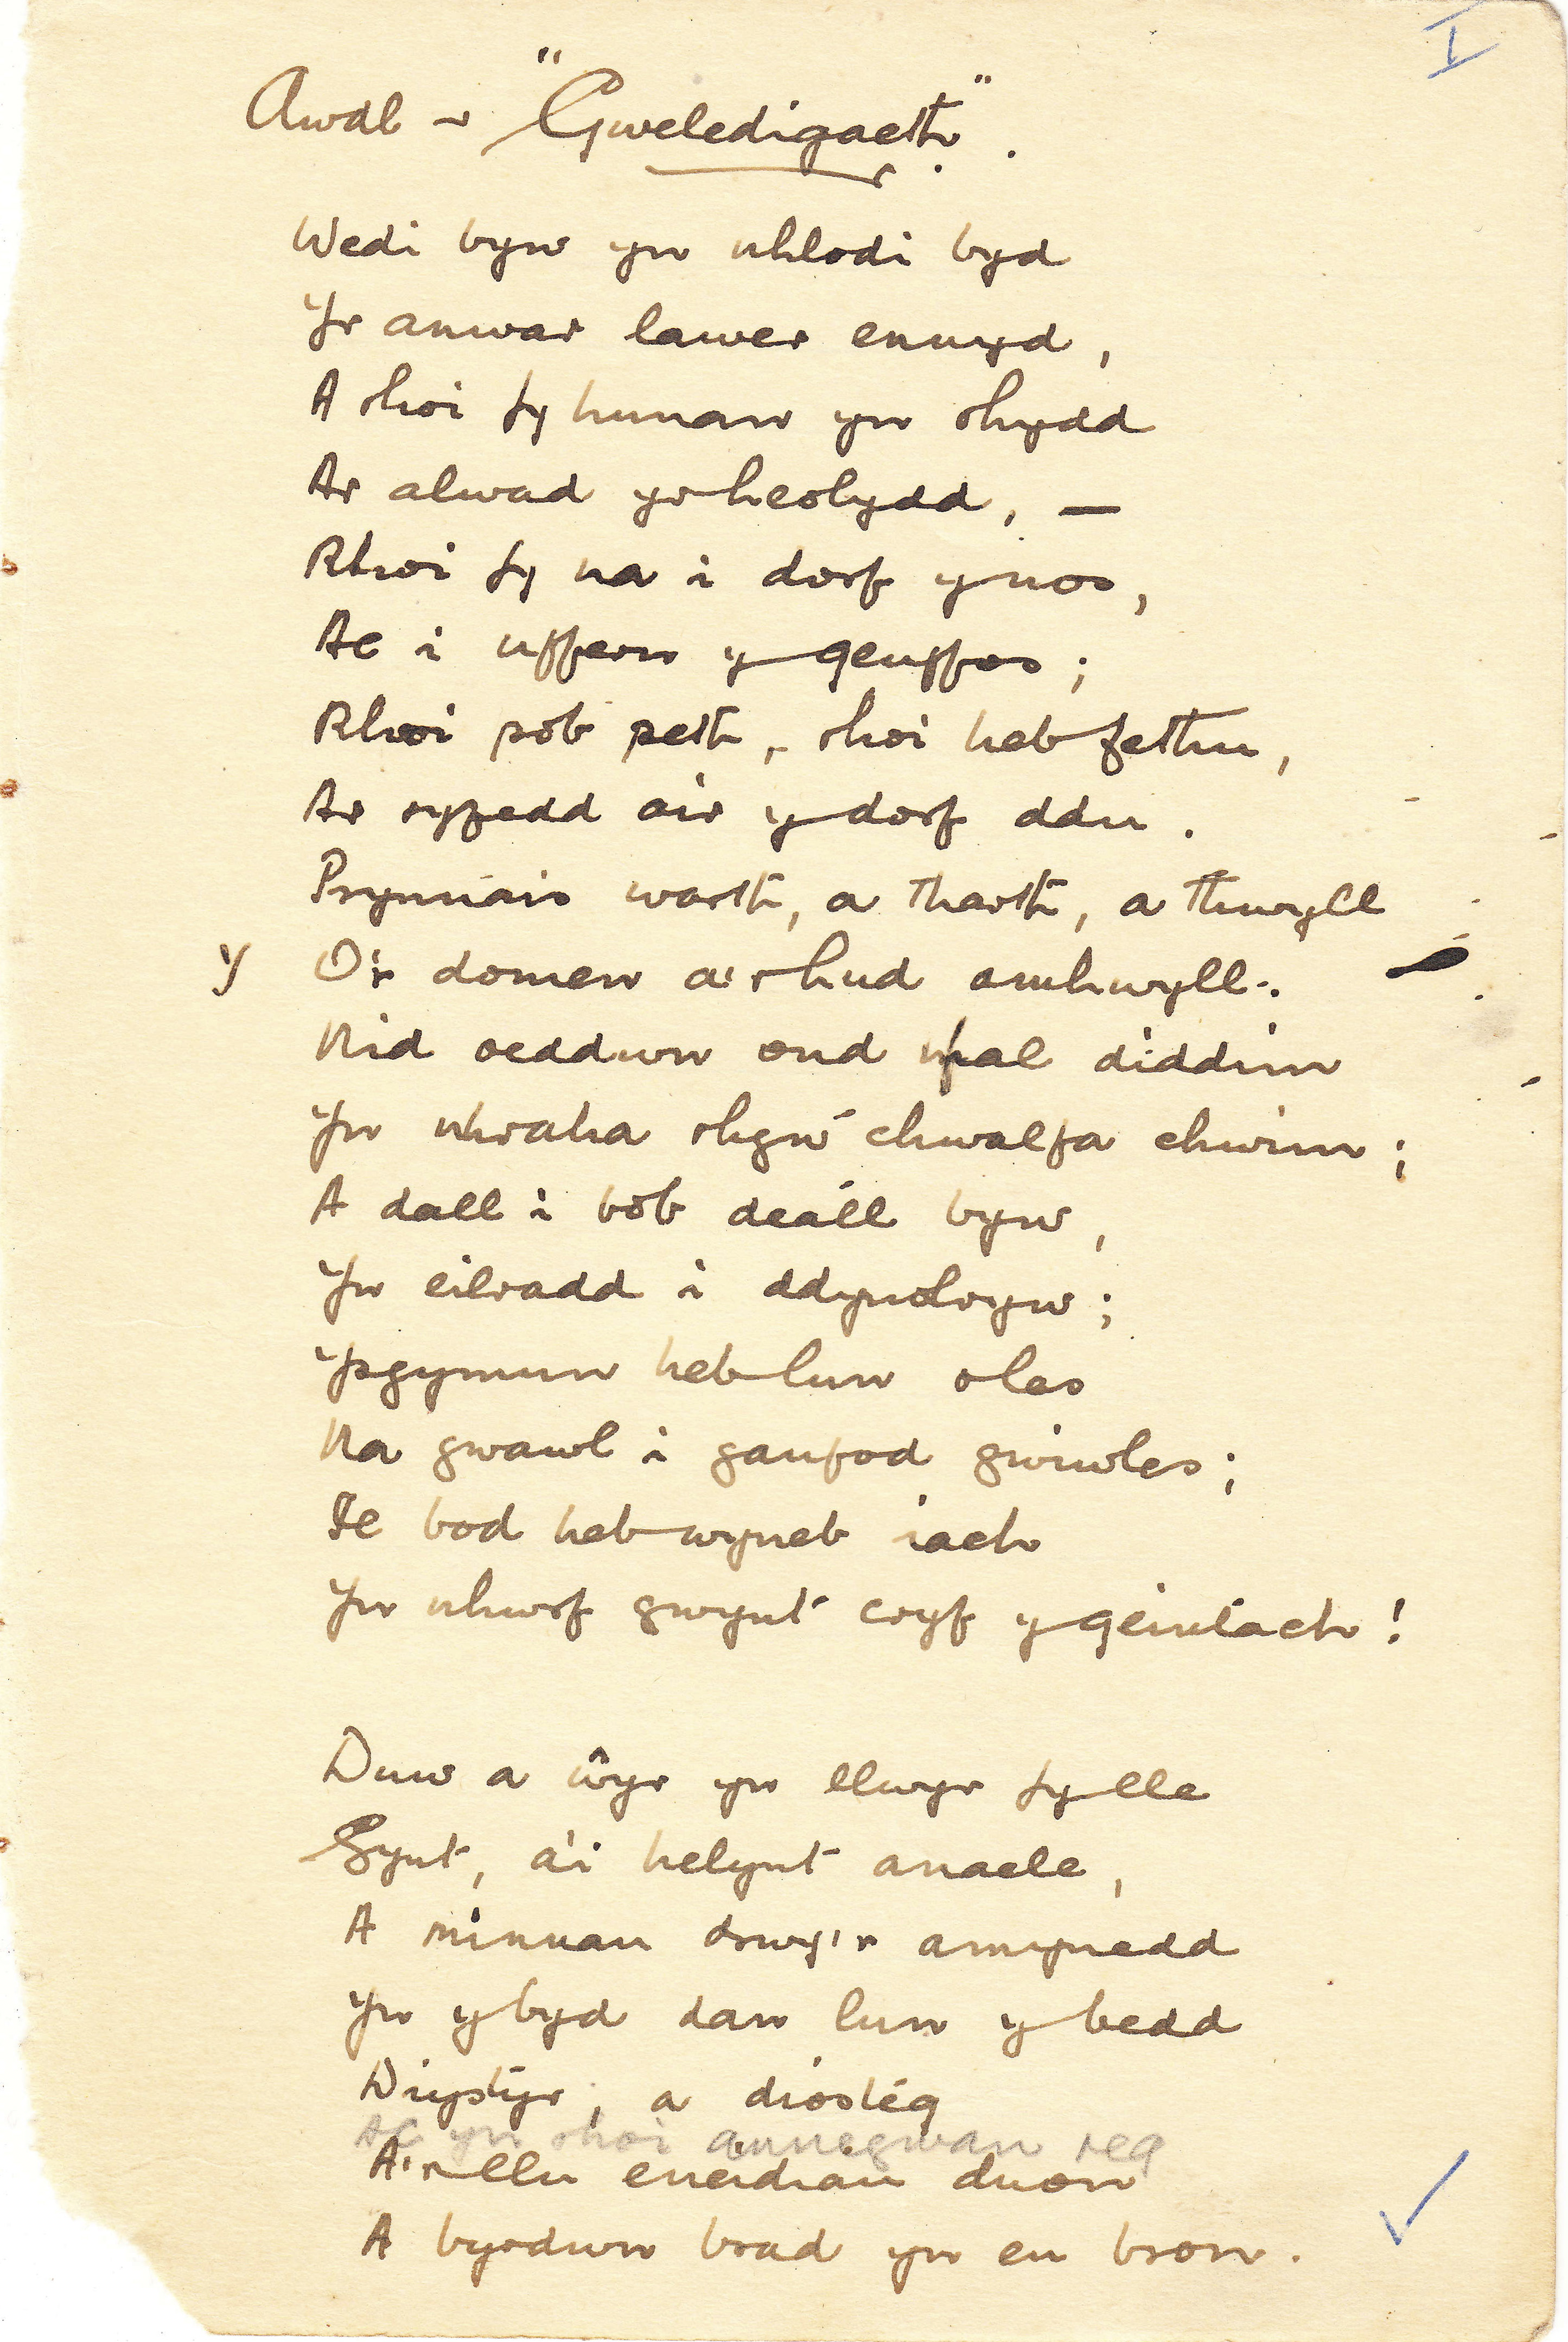 I
Awdl ~ "Gweledigaeth".
Wedi byw yn nhlodi byd
Yr anwar lawer ennyd,
A rhoi fy hunan yn rhydd
Ar alwad yr heolydd, —
Rhoi fy na i dorf y nos,
Ac i uffern y geuffos;
Rhoi pob peth, rhoi heb fethu,
Ar ryfedd air y dorf ddu.
Prynnais warth, a tharth, a thwyll
y O'r domen a'r hud amhwyll.
Nid oeddwn ond mal diddim
Yn nhraha rhyw chwalfa chwim;
A dall i bob deáll byw,
Yn eilradd i ddynolryw;
Ysgymun heb lun oles
Na gwawl i ganfod gwiwles;
Ie bod heb wyneb iach
Yn nhwrf gwynt cryf y geintach!
Duw a ŵyr yn llwyr fy lle
Gynt, a'i helynt anaele,
A minnau drwy'r amynedd
Yn y byd dan lun y bedd
Diystyr, a diosteg
Ac yn rhoi annegwan reg
A'r llu eneidiau duon
A byrdwn brad yn eu bron.